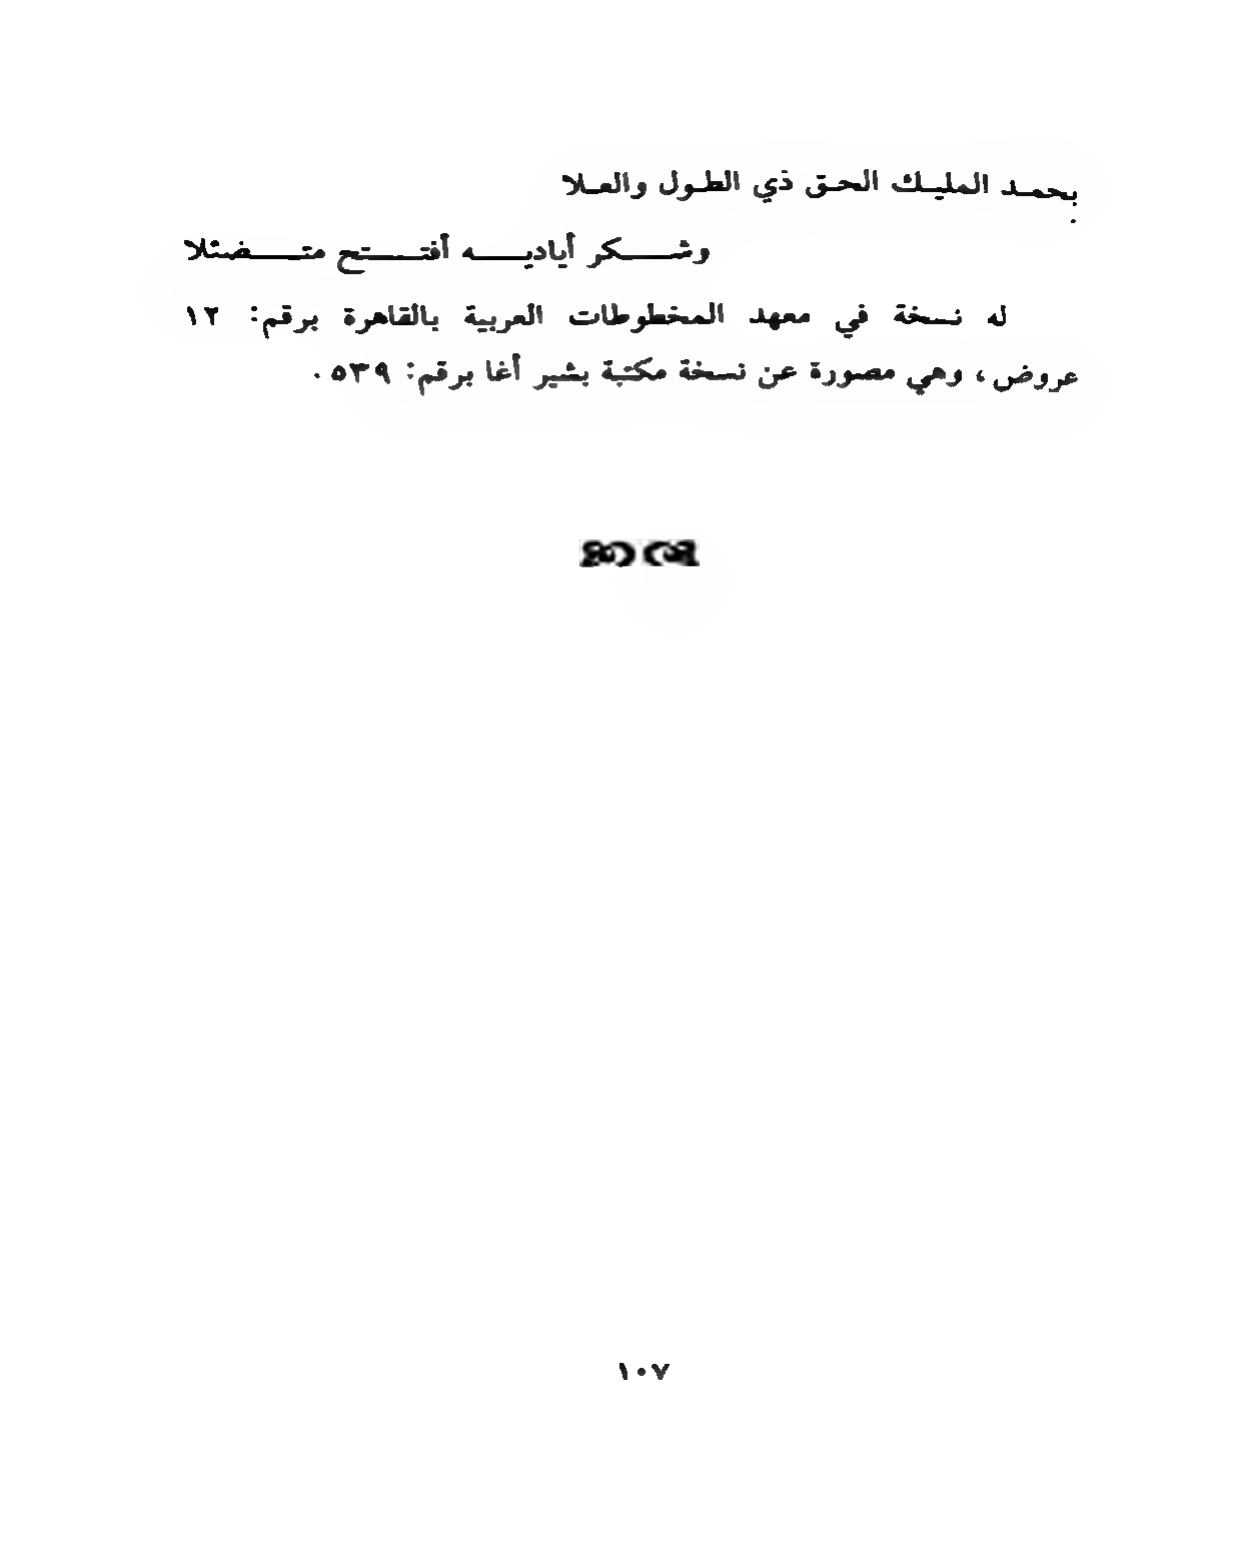 بحمد المليك الحق ذي الطول والعلا
وشكر أياديه أفتتح متضئلا
له نسخة في معهد المخطوطات العربية بالقاهرة برقم: ١٢
عروض، وهي مصورة عن نسخة مكتبة بشير أغا برقم: ٥٣٩.
١٠٧